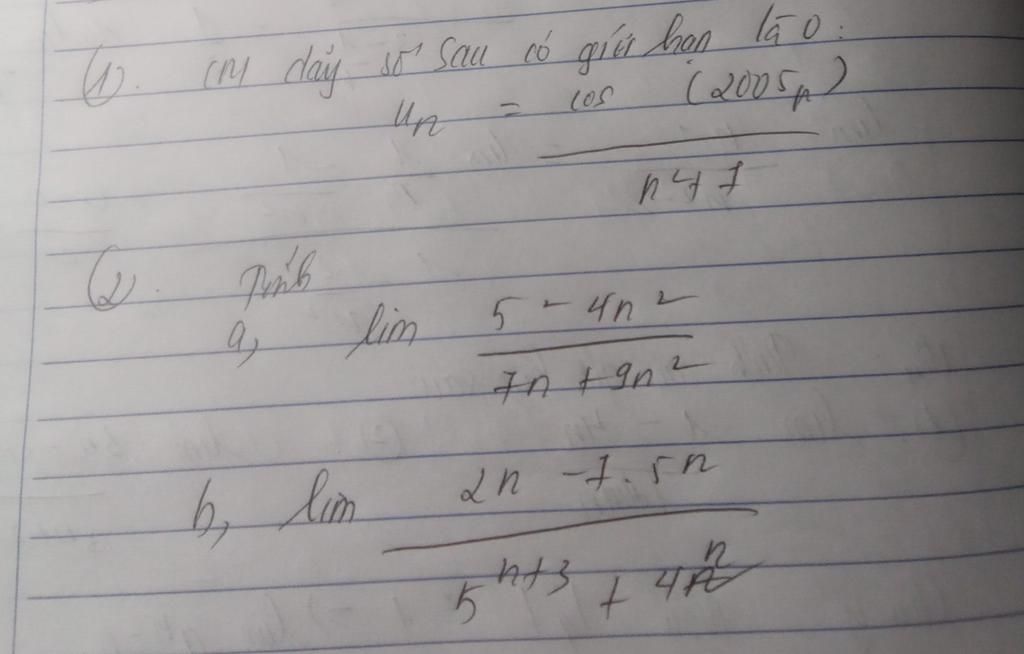 (1). CM dãy số sau có giới hạn là 0:
uₙ = cos (2005n)
n⁴ + 7
(2). Tính
a, lim 5 - 4n²
7n + 9n²
b, lim 2n - 7.5ⁿ
5ⁿ⁺³ + 4ⁿ